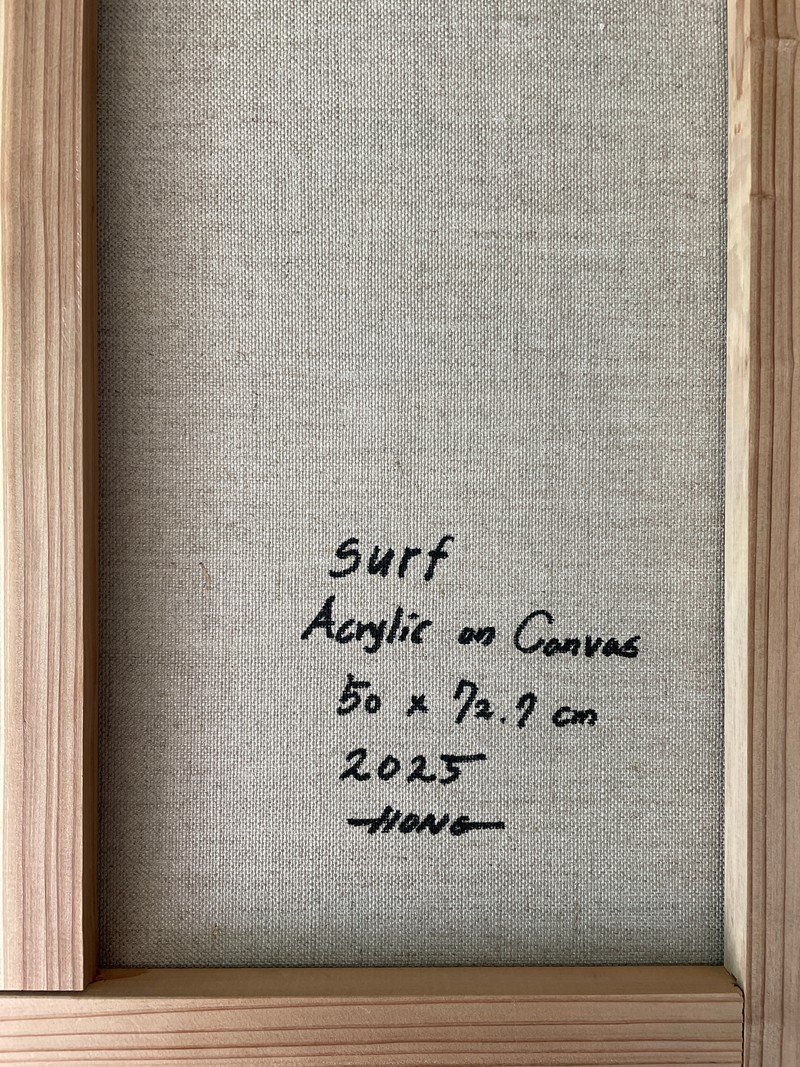 Surf
Acrylic on Canvas
50 x 72.7 cm
2025
HONG